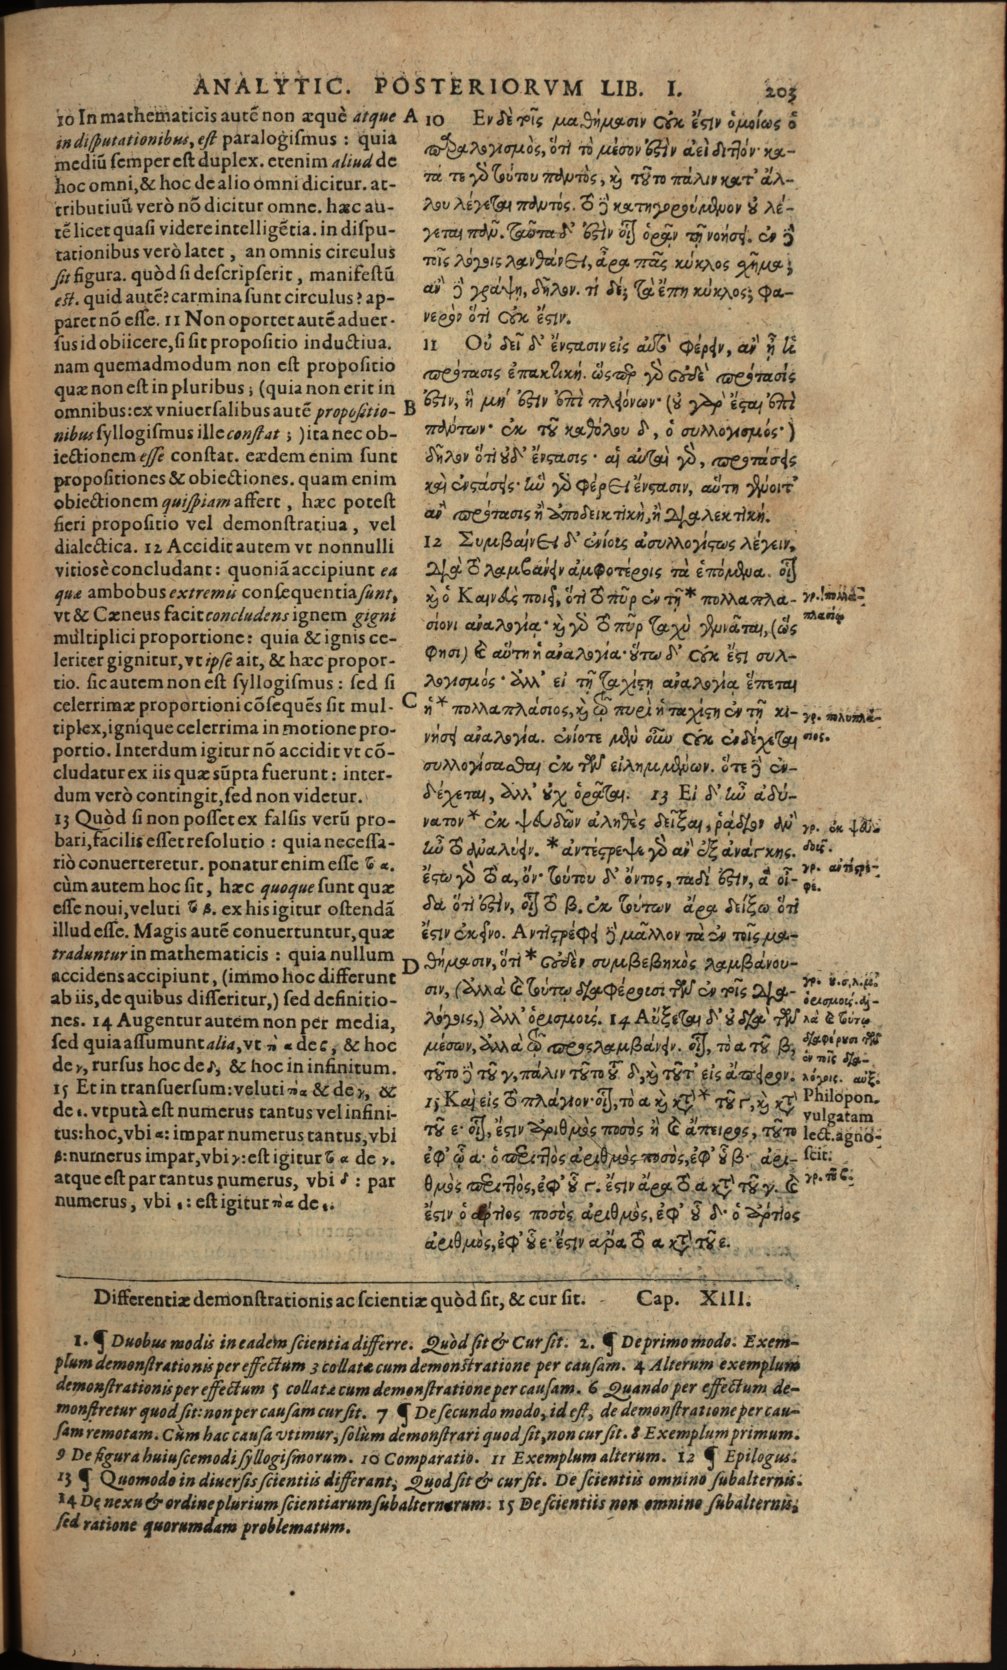 ANALYTIC. POSTERIORVM LIB. I. 203
10 In mathematicis autẽ non æquè atque
in disputationibus, est paralogismus : quia
mediũ semper est duplex. etenim aliud de
hoc omni, & hoc de alio omni dicitur. at-
tributiuũ verò nõ dicitur omne. hæc au-
tẽ licet quasi videre intelligẽtia. in dispu-
tationibus verò latet, an omnis circulus
sit figura. quòd si descripserit, manifestũ
est. quid autẽ? carmina sunt circulus? ap-
paret nõ esse. 11 Non oportet autẽ aduer-
sus id obiicere, si sit propositio inductiua.
nam quemadmodum non est propositio
quæ non est in pluribus ; (quia non erit in
omnibus: ex vniuersalibus autẽ propositio-
nibus syllogismus ille constat ; ) ita nec ob-
iectionem esse constat. eædem enim sunt
propositiones & obiectiones. quam enim
obiectionem quispiam affert, hæc potest
fieri propositio vel demonstratiua, vel
dialectica. 12 Accidit autem vt nonnulli
vitiosè concludant: quoniã accipiunt ea
quæ ambobus extremis consequentia sunt,
vt & Cæneus facit concludens ignem gigni
multiplici proportione: quia & ignis ce-
leriter gignitur, vt ipse ait, & hæc propor-
tio. sic autem non est syllogismus: sed si
celerrimæ proportioni cõsequẽs sit mul-
tiplex, ignique celerrima in motione pro-
portio. Interdum igitur nõ accidit vt cõ-
cludatur ex iis quæ sũpta fuerunt: inter-
dum verò contingit, sed non videtur.
13 Quòd si non posset ex falsis verũ pro-
bari, facilis esset resolutio : quia necessa-
riò conuerteretur. ponatur enim esse τὸ α.
cùm autem hoc sit, hæc quoque sunt quæ
esse noui, veluti τὸ β. ex his igitur ostendã
illud esse. Magis autẽ conuertuntur, quæ
traduntur in mathematicis : quia nullum
accidens accipiunt, (immo hoc differunt
ab iis, de quibus disseritur,) sed definitio-
nes. 14 Augentur autem non per media,
sed quia assumunt alia, vt τὸ α de ϛ, & hoc
de γ, rursus hoc de δ, & hoc in infinitum.
15 Et in transuersum: veluti τὸ α & de γ, &
de ε. vtputà est numerus tantus vel infini-
tus: hoc, vbi α: impar numerus tantus, vbi
β: numerus impar, vbi γ: est igitur τὸ α de γ.
atque est par tantus numerus, vbi δ : par
numerus, vbi ε: est igitur τὸ α de ε.
A
B
C
D
10 Εν δὲ τοῖς μαθήμασιν οὐκ ἔστιν ὁμοίως ὁ
παραλογισμὸς, ὅτι τὸ μέσον ἐστὶν ἀεὶ διττόν· κα-
τά τε γὸ τούτου παντὸς, καὶ τοῦτο πάλιν κατ' ἄλ-
λου λέγεται παντός. τὸ δὲ κατηγορούμενον οὐ λέ-
γεται πᾶν. ταῦτα δ' ἐστὶν οἷον ὁρᾶν τῇ νοήσει. ἐν δὲ
τοῖς λόγοις λανθάνει, ἆρα πᾶς κύκλος σχῆμα;
ἂν δὲ γράψῃ, δῆλον. τί δέ; τὰ ἔπη κύκλος; φα-
νερὸν ὅτι οὐκ ἔστιν.
11 Οὐ δεῖ δ' ἔνστασιν εἰς αὐτὸ φέρειν, ἂν ᾖ ἡ
πρότασις ἐπακτική. ὥσπερ γὸ οὐδὲ πρότασίς
ἐστιν, ἣ μή ἐστιν ἐπὶ πλειόνων· (οὐ γὰρ ἔσται ἐπὶ
πάντων· ἐκ τῶν καθόλου δ', ὁ συλλογισμός· )
δῆλον ὅτι οὐδ' ἔνστασις· αἱ αὐταὶ γὸ, προτάσεις
καὶ ἐνστάσεις· ἣν γὸ φέρει ἔνστασιν, αὕτη γένοιτ'
ἂν πρότασις ἢ ἀποδεικτικὴ, ἢ διαλεκτική.
12 Συμβαίνει δ' ἐνίοις ἀσυλλογίστως λέγειν,
διὰ τὸ λαμβάνειν ἀμφοτέροις τὰ ἑπόμενα. οἷον
καὶ ὁ Καινεὺς ποιεῖ, ὅτι τὸ πῦρ ἐν τῇ * πολλαπλα-
σίονι ἀναλογίᾳ· καὶ γὸ τὸ πῦρ ταχὺ γεννᾶται, (ὥς
φησι) καὶ αὕτη ἡ ἀναλογία· οὕτω δ' οὐκ ἔστι συλ-
λογισμός· ἀλλ' εἰ τῇ ταχίστῃ ἀναλογίᾳ ἕπεται
ἡ * πολλαπλάσιος, καὶ τῷ πυρὶ ἡ ταχίστη ἐν τῇ κι-
νήσει ἀναλογία. ἐνίοτε μὲν οὖν οὐκ ἐνδέχεται
συλλογίσασθαι ἐκ τῶν εἰλημμένων. ὁτὲ δὲ ἐν-
δέχεται, ἀλλ' οὐχ ὁρᾶται. 13 Εἰ δ' ἦν ἀδύ-
νατον * ἐκ ψευδῶν ἀληθὲς δεῖξαι, ῥᾴδιον ἂν
ἦν τὸ ἀναλύειν. * ἀντέστρεψε γὸ ἂν ἐξ ἀνάγκης.
ἔστω γὸ τὸ α, ὄν· τούτου δ' ὄντος, ταδί ἐστιν, ἃ οἶ-
δα ὅτι ἐστὶν, οἷον τὸ β. ἐκ τούτων ἄρα δείξω ὅτι
ἔστιν ἐκεῖνο. Αντιστρέφει δὲ μᾶλλον τὰ ἐν τοῖς μα-
θήμασιν, ὅτι * οὐδὲν συμβεβηκὸς λαμβάνου-
σιν, (ἀλλὰ καὶ τούτῳ διαφέρουσι τῶν ἐν τοῖς δια-
λόγοις,) ἀλλ' ὁρισμούς. 14 Αὔξεται δ' οὐ διὰ τῶν
μέσων, ἀλλὰ τῷ προσλαμβάνειν. οἷον, τὸ α τοῦ β,
τοῦτο δὲ τοῦ γ, πάλιν τοῦτο τοῦ δ, καὶ τοῦτ' εἰς ἄπειρον.
15 Καὶ εἰς τὸ πλάγιον· οἷον, τὸ α καὶ κατὰ * τοῦ γ, καὶ κατὰ
τοῦ ε· οἷον, ἔστιν ἀριθμὸς ποσὸς ἢ καὶ ἄπειρος, τοῦτο
ἐφ' ᾧ α· ὁ περιττὸς ἀριθμὸς ποσὸς, ἐφ' οὗ β· ἀρι-
θμὸς περιττὸς, ἐφ' οὗ γ. ἔστιν ἄρα τὸ α κατὰ τοῦ γ. καὶ
ἔστιν ὁ ἄρτιος ποσὸς ἀριθμὸς, ἐφ' οὗ δ· ὁ ἄρτιος
ἀριθμὸς, ἐφ' οὗ ε· ἔστιν ἄρα τὸ α κατὰ τοῦ ε.
γρ. πολυπλά-
σιος.
γρ. ἐκ ψευ-
δοῦς.
γρ. ἀντέστρε-
φε.
Philopon.
vulgatam
lect. agno-
scit.
Differentiæ demonstrationis ac scientiæ quòd sit, & cur sit. Cap. XIII.
1. ¶ Duobus modis in eadem scientia differre. Quòd sit & Cur sit. 2. ¶ De primo modo. Exem-
plum demonstrationis per effectum 3 collatæ cum demonstratione per causam. 4 Alterum exemplum
demonstrationis per effectum 5 collatæ cum demonstratione per causam. 6 Quando per effectum de-
monstretur quod sit: non per causam cur sit. 7 ¶ De secundo modo, id est, de demonstratione per cau-
sam remotam. Cùm hac causa vtimur, solùm demonstrari quod sit, non cur sit. 8 Exemplum primum.
9 De figura huiuscemodi syllogismorum. 10 Comparatio. 11 Exemplum alterum. 12 ¶ Epilogus.
13 ¶ Quomodo in diuersis scientiis differant, Quod sit & cur sit. De scientiis omnino subalternis.
14 De nexu & ordine plurium scientiarum subalternarum. 15 De scientiis non omnino subalternis,
sed ratione quorumdam problematum.